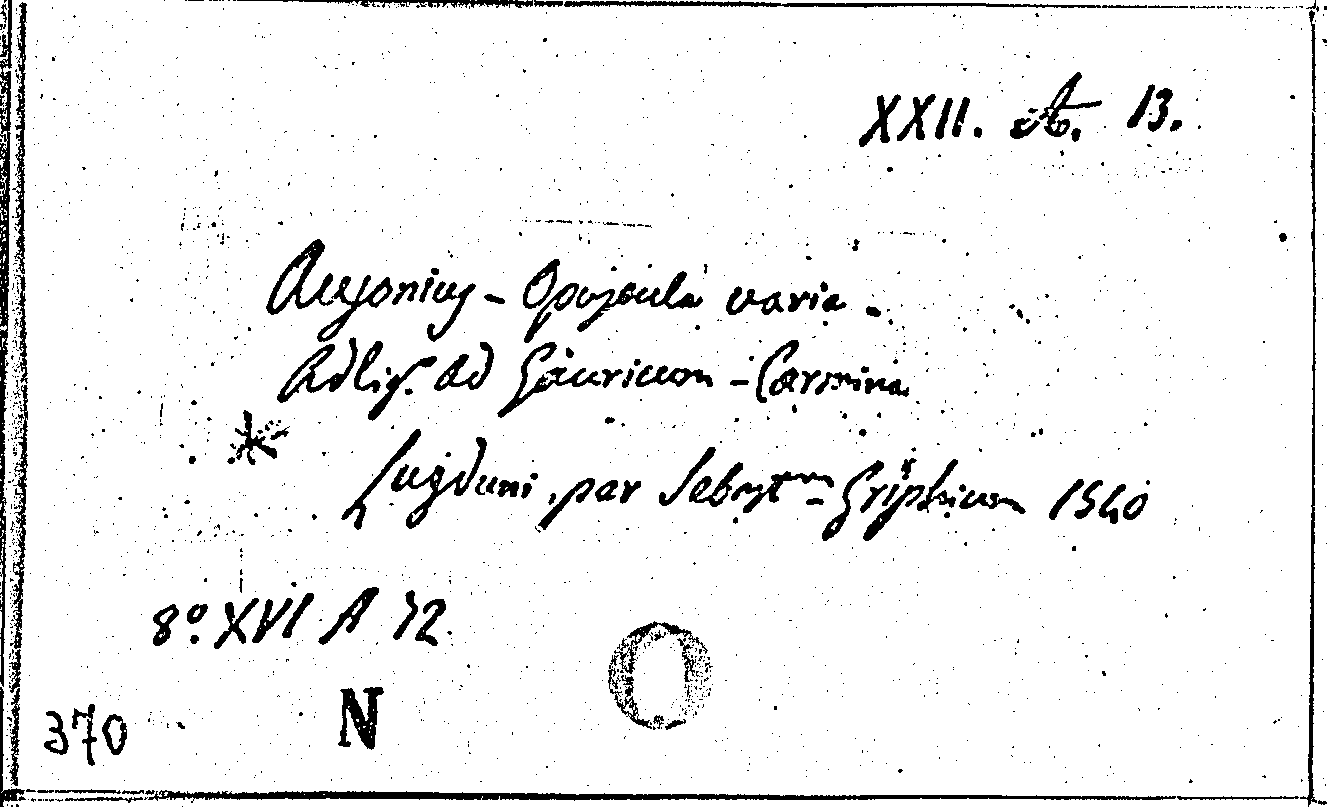 XXII. A. 13.
Ausonius - Opuscula varia -
Adlig. ad Gauricum - Carmina
*
Lugduni, par Sebast^m - Griphium 1540
8º. XVI A 72
O
N
370